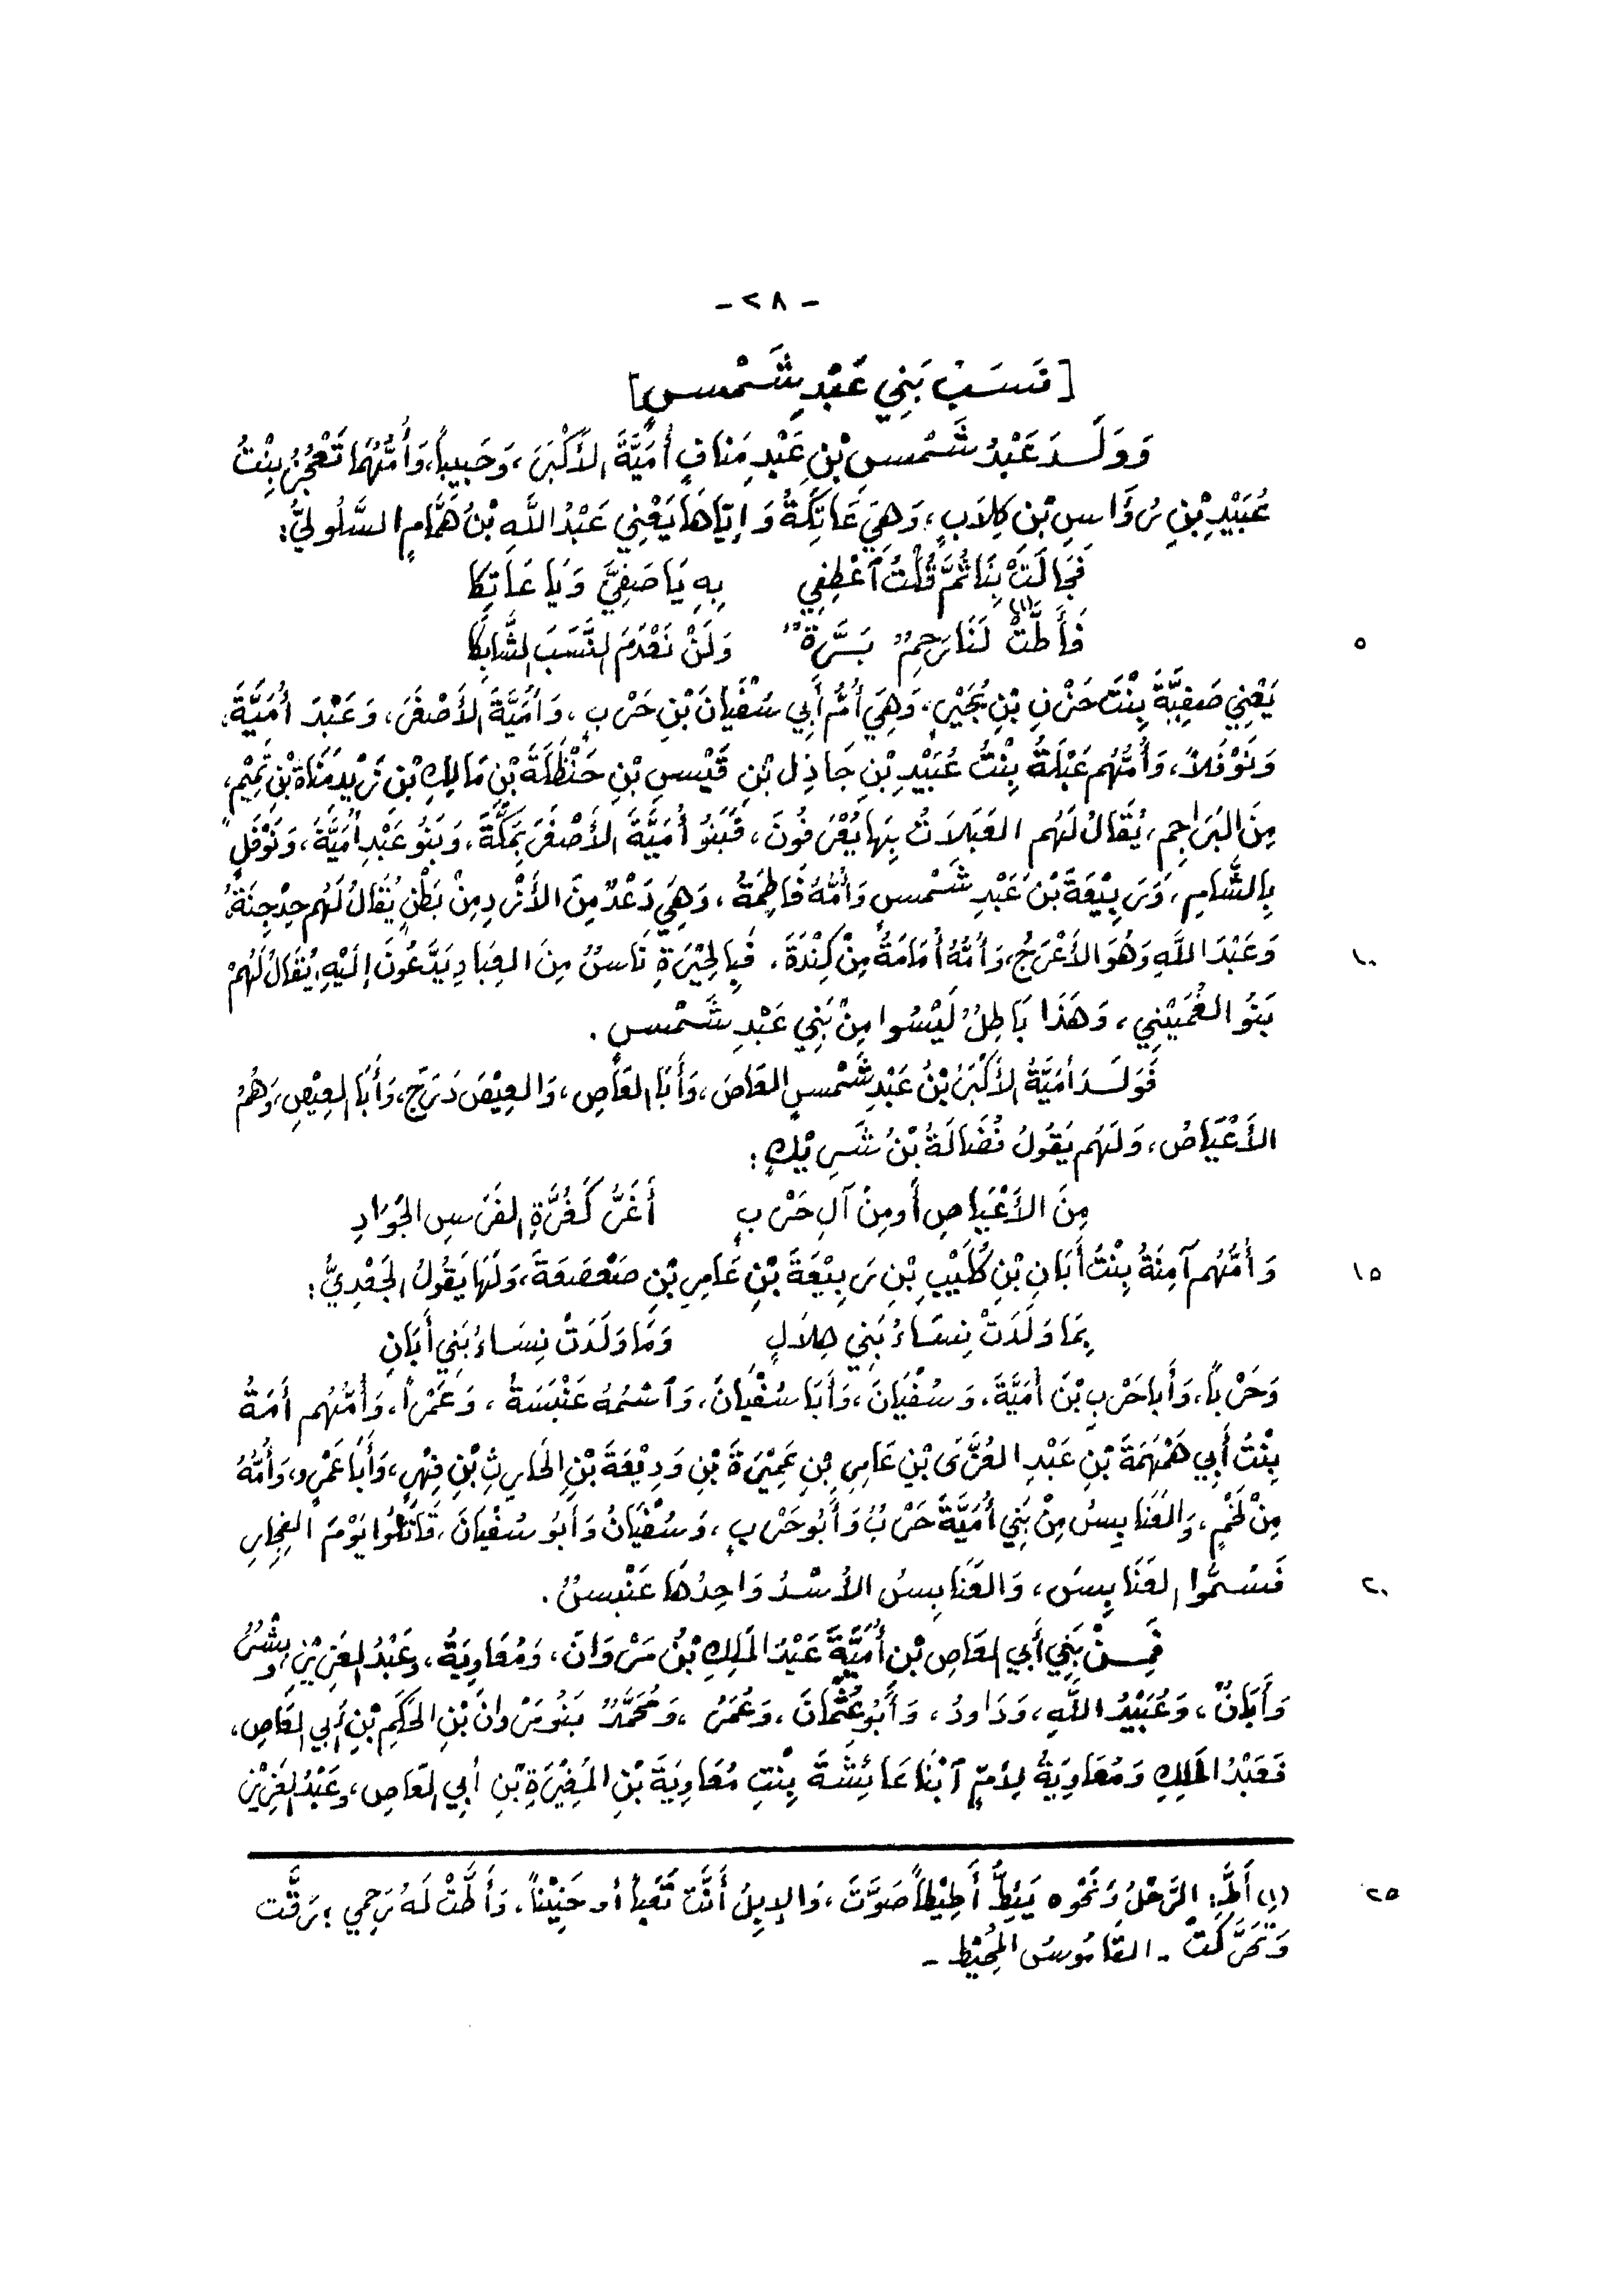 - ٢٨ -
[نَسَبُ بَنِي عَبْدِ شَمْسٍ]
وَوَلَدَ عَبْدُ شَمْسِ بْنِ عَبْدِ مَنَافٍ أُمَيَّةَ الأَكْبَرَ، وَحَبِيباً، وَأُمُّهُمَا تَعْجُزُ بِنْتُ
عُبَيْدِ بْنِ رُؤَاسِ بْنِ كِلَابٍ، وَهِيَ عَاتِكَةُ وَإِيَّاهَا يَعْنِي عَبْدُ اللَّهِ بْنُ هَمَّامٍ السَّلُولِيُّ:
فَجَالَتْ بِنَا ثُمَّ قُلْتُ ٱعْطِفِي بِهِ يَا صَفِيَّ وَيَا عَاتِكَا
٥ فَأَطَّتْ (١) لَنَا رَحِمٌ بَرَّةٌ وَلَنْ نَعْدَمَ النَّسَبَ الشَّابِكَا
يَعْنِي صَفِيَّةَ بِنْتَ حَزْنِ بْنِ بُجَيْرٍ، وَهِيَ أُمُّ أَبِي سُفْيَانَ بْنِ حَرْبٍ، وَأُمَيَّةَ الأَصْغَرَ، وَعَبْدَ أُمَيَّةَ،
وَنَوْفَلاً، وَأُمُّهُم عَبْلَةُ بِنْتُ عُبَيْدِ بْنِ جَاذِلِ بْنِ قَيْسِ بْنِ حَنْظَلَةَ بْنِ مَالِكِ بْنِ زَيْدِ مَنَاةَ بْنِ تَمِيْمٍ،
مِنَ البَرَاجِمِ، يُقَالُ لَهُم العَبَلَاتُ بِهَا يُعْرَفُونَ، فَبَنُو أُمَيَّةَ الأَصْغَرَ بِمَكَّةَ، وَبَنُو عَبْدِ أُمَيَّةَ، وَنَوْفَلٍ
بِالشَّامِ، وَرَبِيْعَةَ بْنَ عَبْدِ شَمْسٍ وَأُمُّهُ فَاطِمَةُ، وَهِيَ دَعْدٌ مِنَ الأَزْدِ مِنْ بَطْنٍ يُقَالُ لَهُم حِدْجِنَةُ،
١٠ وَعَبْدَ اللَّهِ وَهُوَ الأَعْرَجُ، وَأُمُّهُ أُمَامَةُ مِنْ كِنْدَةَ. فَبِالحِيْرَةِ نَاسٌ مِنَ العِبَادِ يَدَّعُونَ إِلَيْهِ، يُقَالُ لَهُمْ
بَنُو الغُمَيْنِي، وَهَذَا بَاطِلٌ لَيْسُوا مِنْ بَنِي عَبْدِ شَمْسٍ.
فَوَلَدَ أُمَيَّةُ الأَكْبَرُ بْنُ عَبْدِ شَمْسٍ العَاصَ، وَأَبَا العَاصِ، وَالعِيْصَ دَرَجَ، وَأَبَا العِيْصِ، وَهُمُ
الأَعْيَاصُ، وَلَهُم يَقُولُ فُضَالَةُ بْنُ شَرِيْكٍ:
مِنَ الأَعْيَاصِ أَو مِنْ آلِ حَرْبٍ أَغَرَّ كَغُرَّةِ الفَرَسِ الجَوَادِ
١٥ وَأُمُّهُم آمِنَةُ بِنْتُ أَبَانِ بْنِ كُلَيْبِ بْنِ رَبِيْعَةَ بْنِ عَامِرِ بْنِ صَعْصَعَةَ، وَلَهَا يَقُولُ الجَعْدِيُّ:
بِمَا وَلَدَتْ نِسَاءُ بَنِي هِلَالٍ وَمَا وَلَدَتْ نِسَاءُ بَنِي أَبَانِ
وَحَرْباً، وَأَبَا حَرْبِ بْنَ أُمَيَّةَ، وَسُفْيَانَ، وَأَبَا سُفْيَانَ، وَٱسْمُهُ عَنْبَسَةُ، وَعَمْراً، وَأُمُّهُم أَمَةُ
بِنْتُ أَبِي هَمْهَمَةَ بْنِ عَبْدِ العُزَّى بْنِ عَامِرِ بْنِ عَمِيْرَةَ بْنِ وَدِيْعَةَ بْنِ الحَارِثِ بْنِ فِهْرٍ، وَأَبَا عَمْرٍو، وَأُمُّهُ
مِنْ لَخْمٍ، وَالعَنَابِسُ مِنْ بَنِي أُمَيَّةَ حَرْبُ وَأَبُو حَرْبٍ، وَسُفْيَانُ وَأَبُو سُفْيَانَ، قَاتَلُوا يَوْمَ الفِجَارِ
٢٠ فَسُمُّوا العَنَابِسَ، وَالعَنَابِسُ الأُسْدُ وَاحِدُهَا عَنْبَسٌ.
فَمِنْ بَنِي أَبِي العَاصِ بْنِ أُمَيَّةَ عَبْدُ المَلِكِ بْنُ مَرْوَانَ، وَمُعَاوِيَةُ، وَعَبْدُ العَزِيْزِ، وَبِشْرٌ
وَأَبَانٌ، وَعُبَيْدُ اللَّهِ، وَدَاودُ، وَأَبُو عُثْمَانَ، وَعُمَرُ، وَمُحَمَّدٌ بَنُو مَرْوَانَ بْنِ الحَكَمِ بْنِ أَبِي العَاصِ،
فَعَبْدُ المَلِكِ وَمُعَاوِيَةُ لِأُمٍّ ٱبْنَا عَائِشَةَ بِنْتِ مُعَاوِيَةَ بْنِ المُغِيْرَةِ بْنِ أَبِي العَاصِ، وَعَبْدُ العَزِيْزِ
٢٥ (١) أَطَّ: الرَّحْلُ وَنَحْوه يَئِطُّ أَطِيْطاً صَوَّتَ، وَالإِبِلُ أَنَّتْ تَعَباً أو حَنِيْناً، وَأَطَّتْ لَهُ رَحِمِي؛ رَقَّت
وَتَحَرَّكَتْ - القَامُوسُ المُحِيْط -